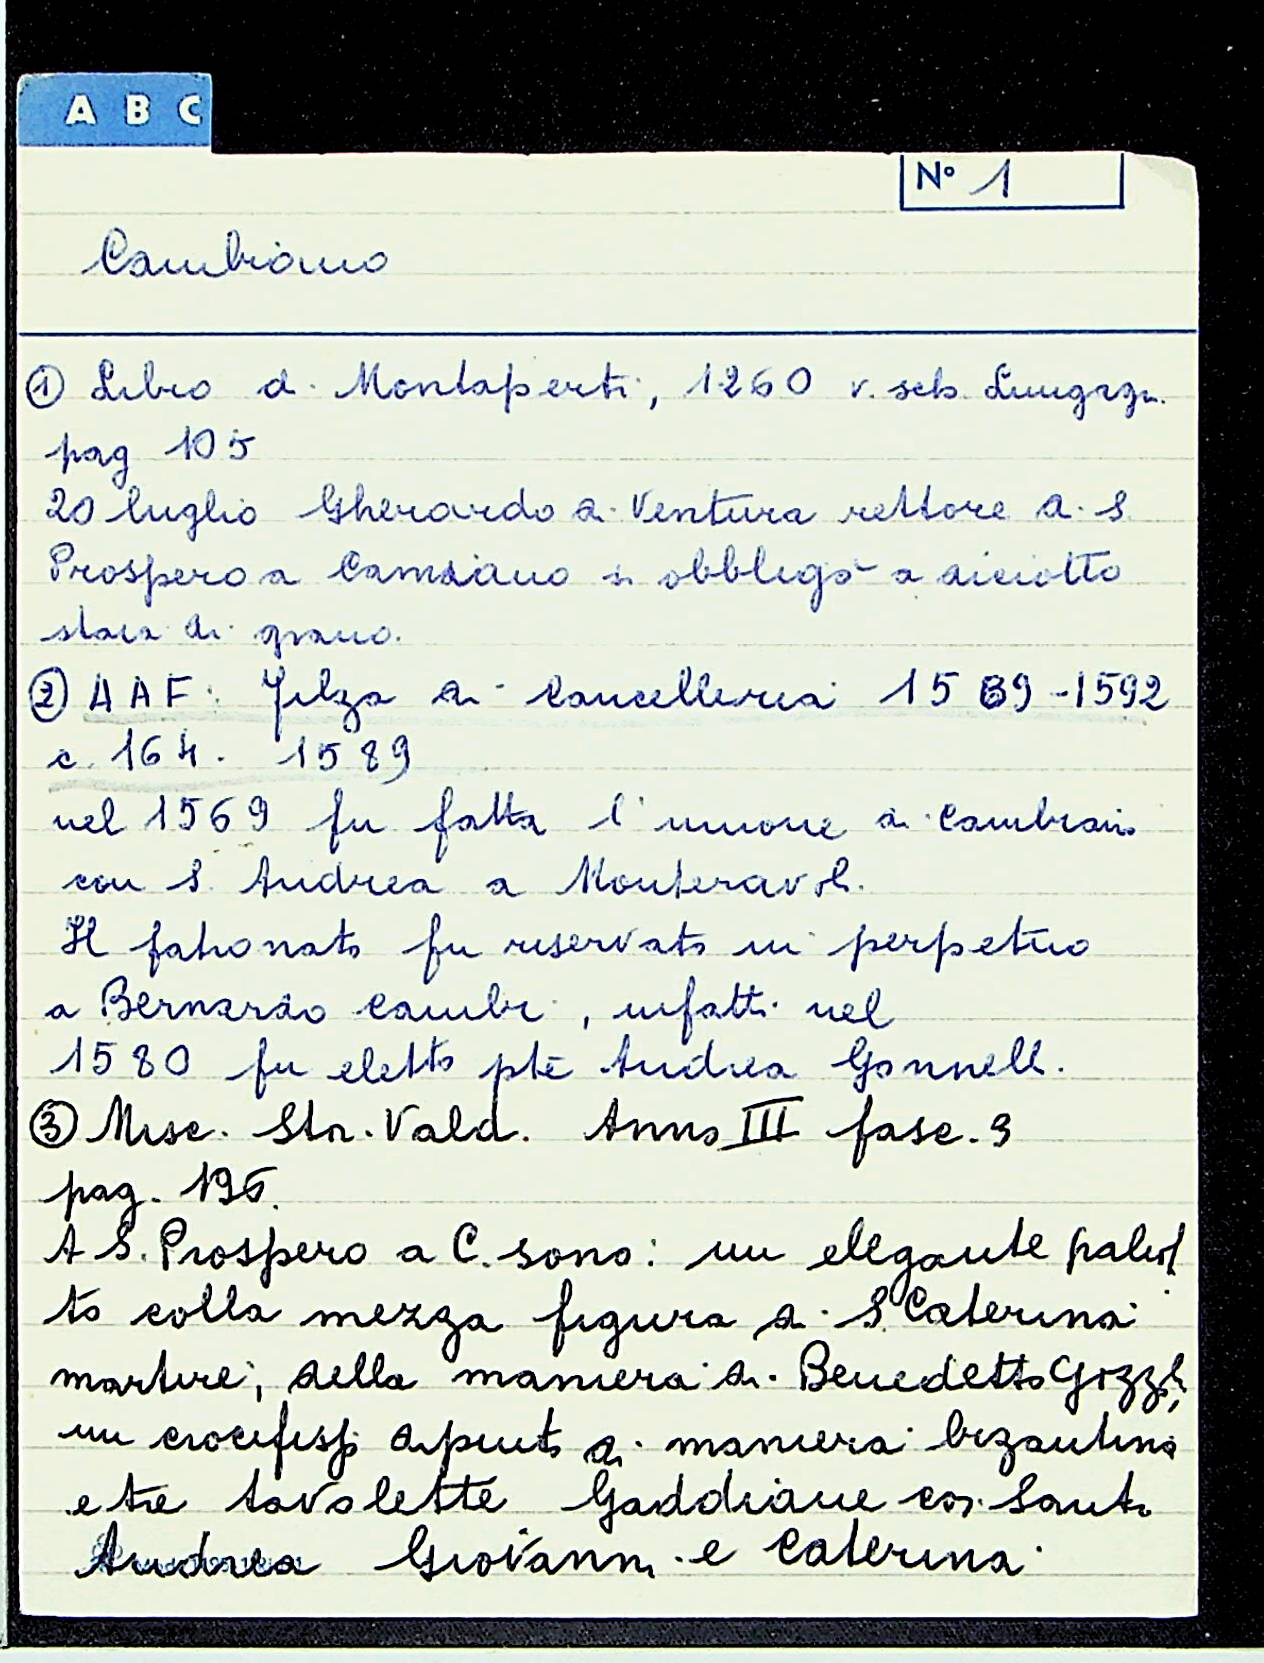 A B C
N° 1
Cambiano
① Libro di Montaperti, 1260 v. sch. Lungagn.
pag 105
20 luglio Gherardo di Ventura rettore di S
Prospero a Cambiano si obbligò a diciotto
staia di grano.
② AAF. Filza di Cancelleria 1589-1592
c. 164. 1589
nel 1569 fu fatta l'unione di Cambiano
con S. Andrea a Monteravoli.
Il patronato fu riservato in perpetuo
a Bernardo Cambi, infatti nel
1580 fu eletto pte Andrea Gonnelli.
③ Misc. Stor. Vald. Anno III fasc. 3
pag. 196.
A S. Prospero a C. sono: un elegante paliot
to colla mezza figura di S Caterina
martire, della maniera di Benedetto Gozzoli,
un crocifisso dipinto di maniera bizantina
e tre tavolette Gaddiane coi Santi
Andrea Giovanni e Caterina